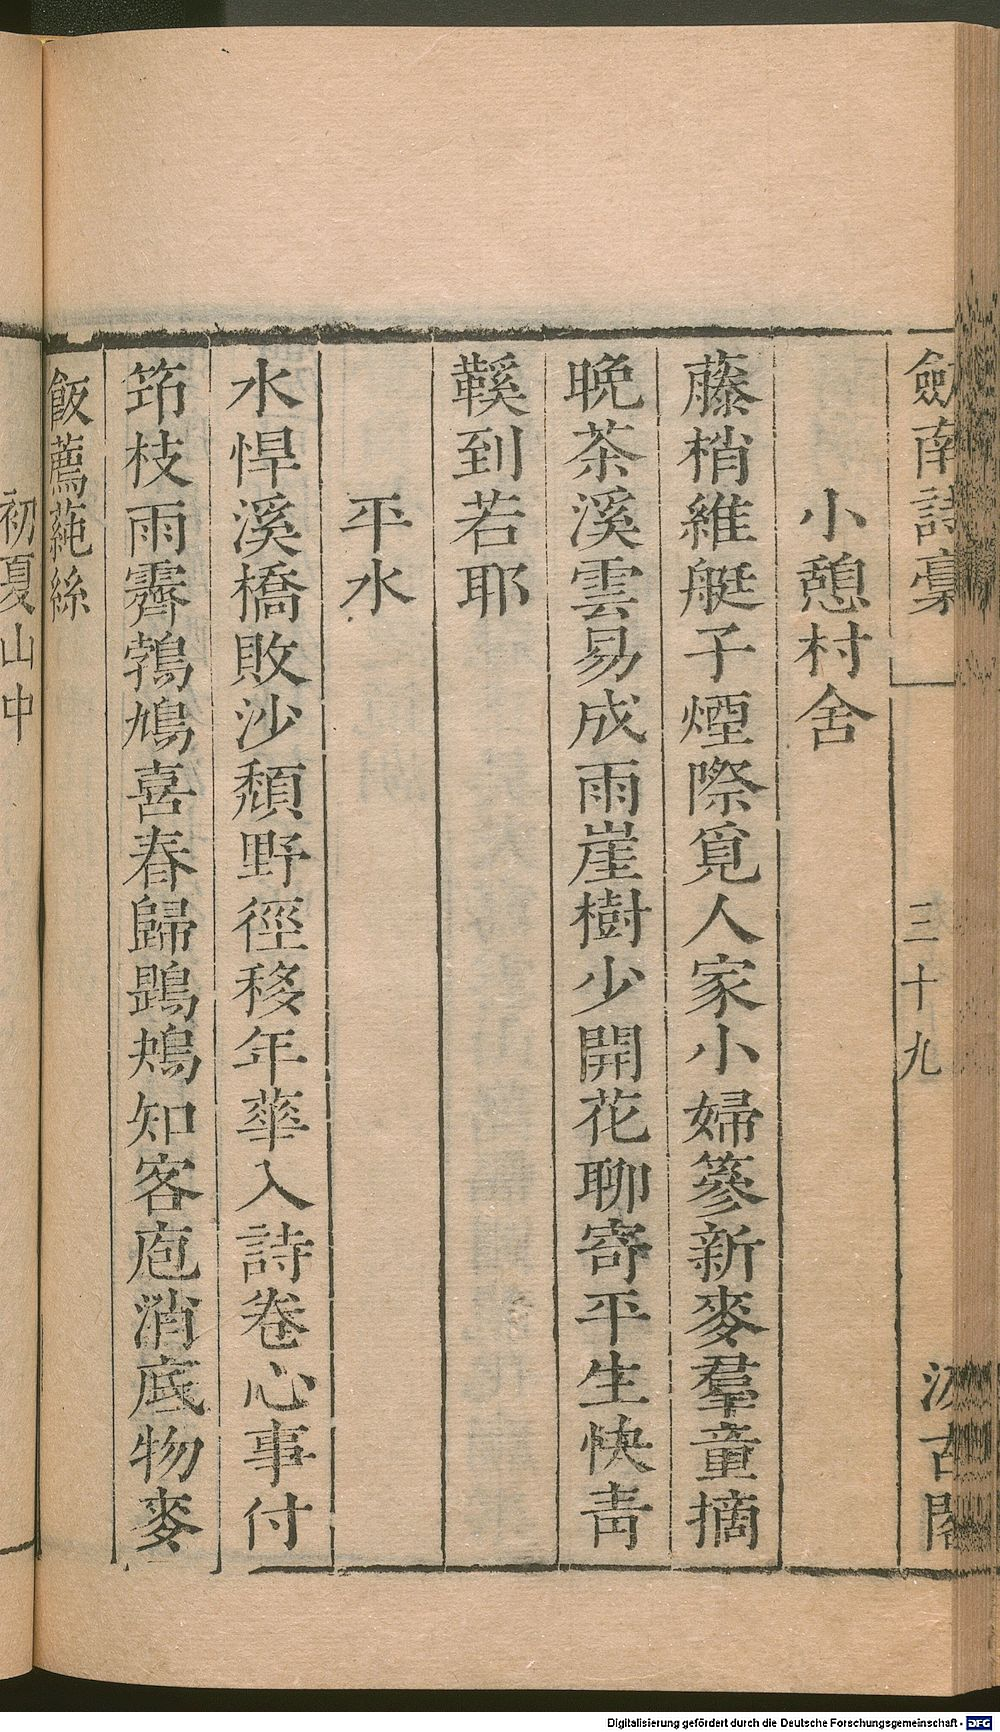 劍南詩稾 三十九 汲古閣
小憩村舍
藤梢維艇子煙際覓人家小婦簸新麥羣童摘
晚茶溪雲易成雨崖樹少開花聊寄平生快青
鞵到若耶
平水
水悍溪橋敗沙頹野徑移年華入詩卷心事付
筇枝雨霽鵓鳩喜春歸鶗鴂知客庖消底物麥
飯薦蓴絲
初夏山中
Digitalisierung gefördert durch die Deutsche Forschungsgemeinschaft - DFG